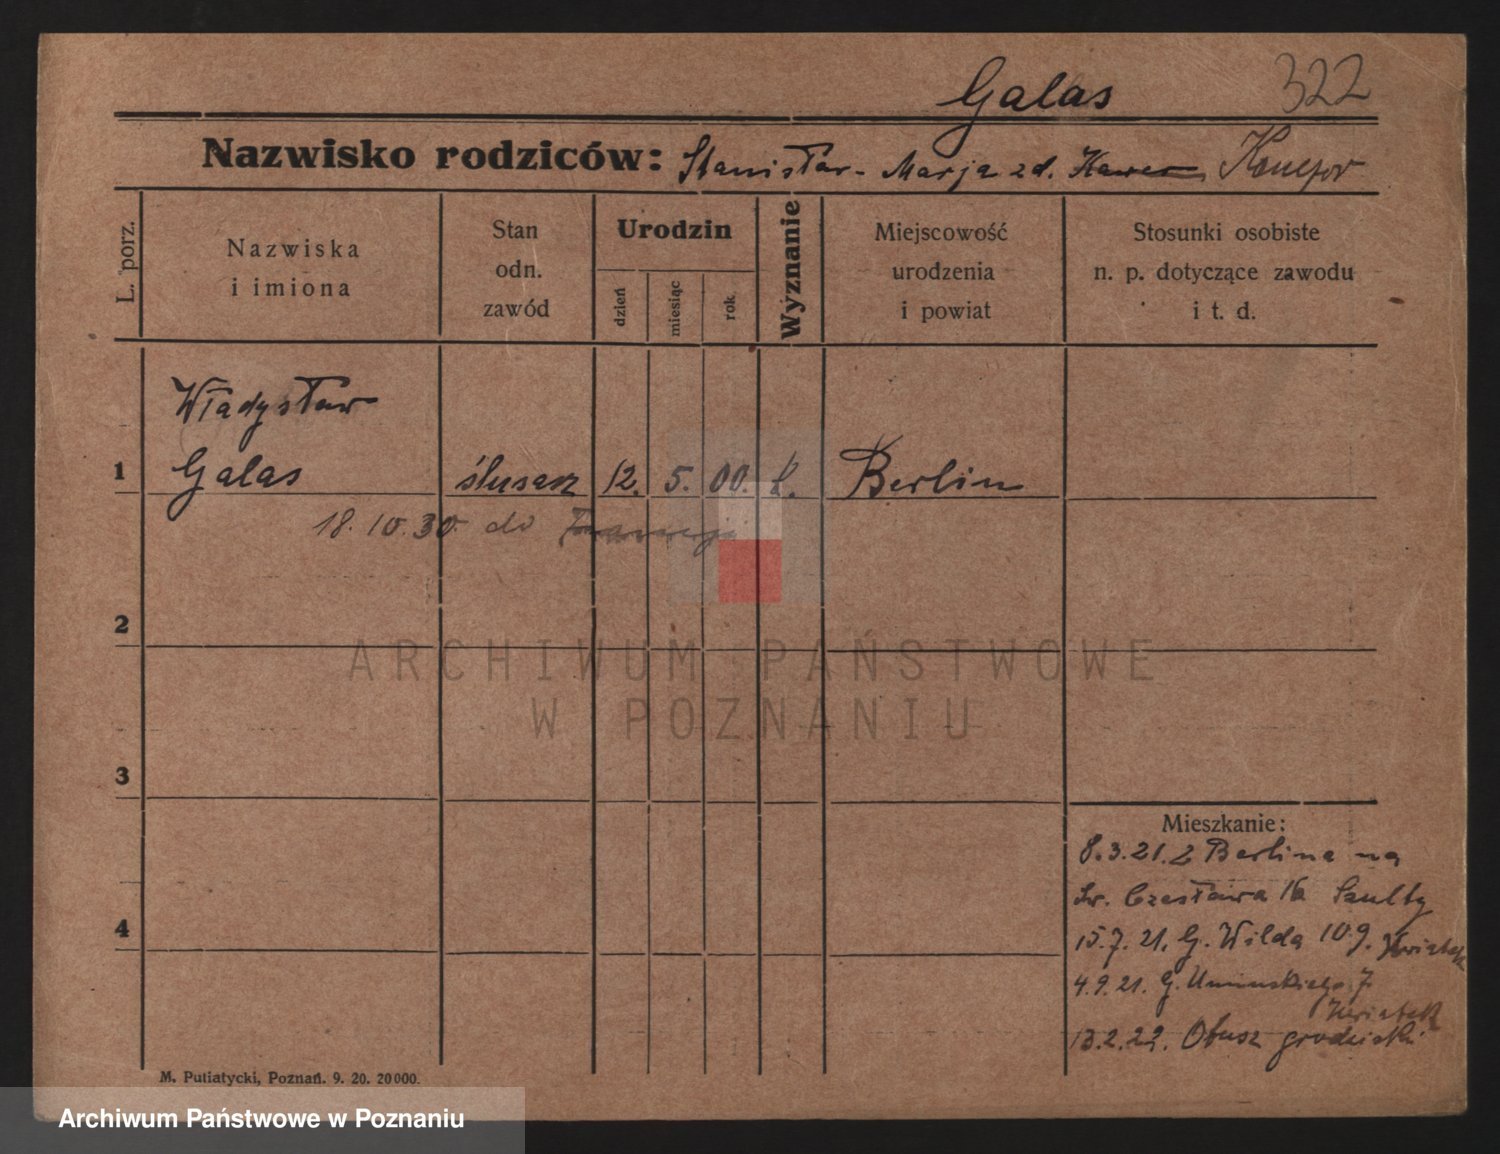 Galas 322
Nazwisko rodziców: Stanisław - Marja zd.
L. porz.
Nazwiska
i imiona
Stan
odn.
zawód
Urodzin
dzień
miesiąc
rok
Wyznanie
Miejscowość
urodzenia
i powiat
Stosunki osobiste
n. p. dotyczące zawodu
i t. d.
Władysław
1 Galas ślusarz 12. 5. 00. k. Berlin
18.10.30. do
2
3
4
Mieszkanie:
8.3.21. z Berlina na
Św. Czesława 16 Szulty
15.7.21. G. Wilda 109. Kwiatek
4.9.21. G. Umińskiego 7
Kwiatek
13.2.22. Obusz grodziski
M. Putiatycki, Poznań. 9. 20. 20000.
ARCHIWUM PAŃSTWOWE
W POZNANIU
Archiwum Państwowe w Poznaniu